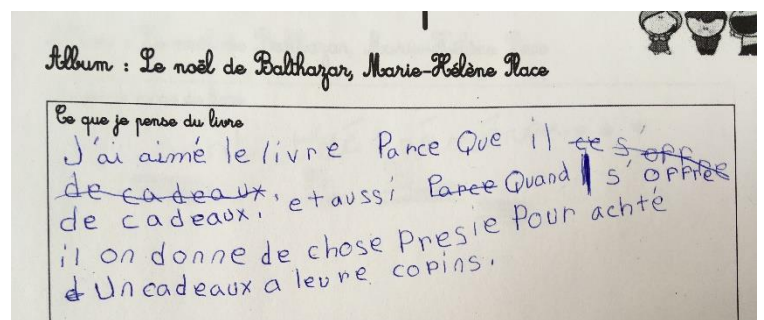 Album : Le noël de Balthazar, Marie-Hélène Place
Ce que je pense du livre
J'ai aimé le livre Parce Que il ce s'offre
de cadeaux. et aussi Parce Quand s'offrec
de cadeaux.
il on donne de chose Presie Pour achté
d Un cadeaux a leure copins.